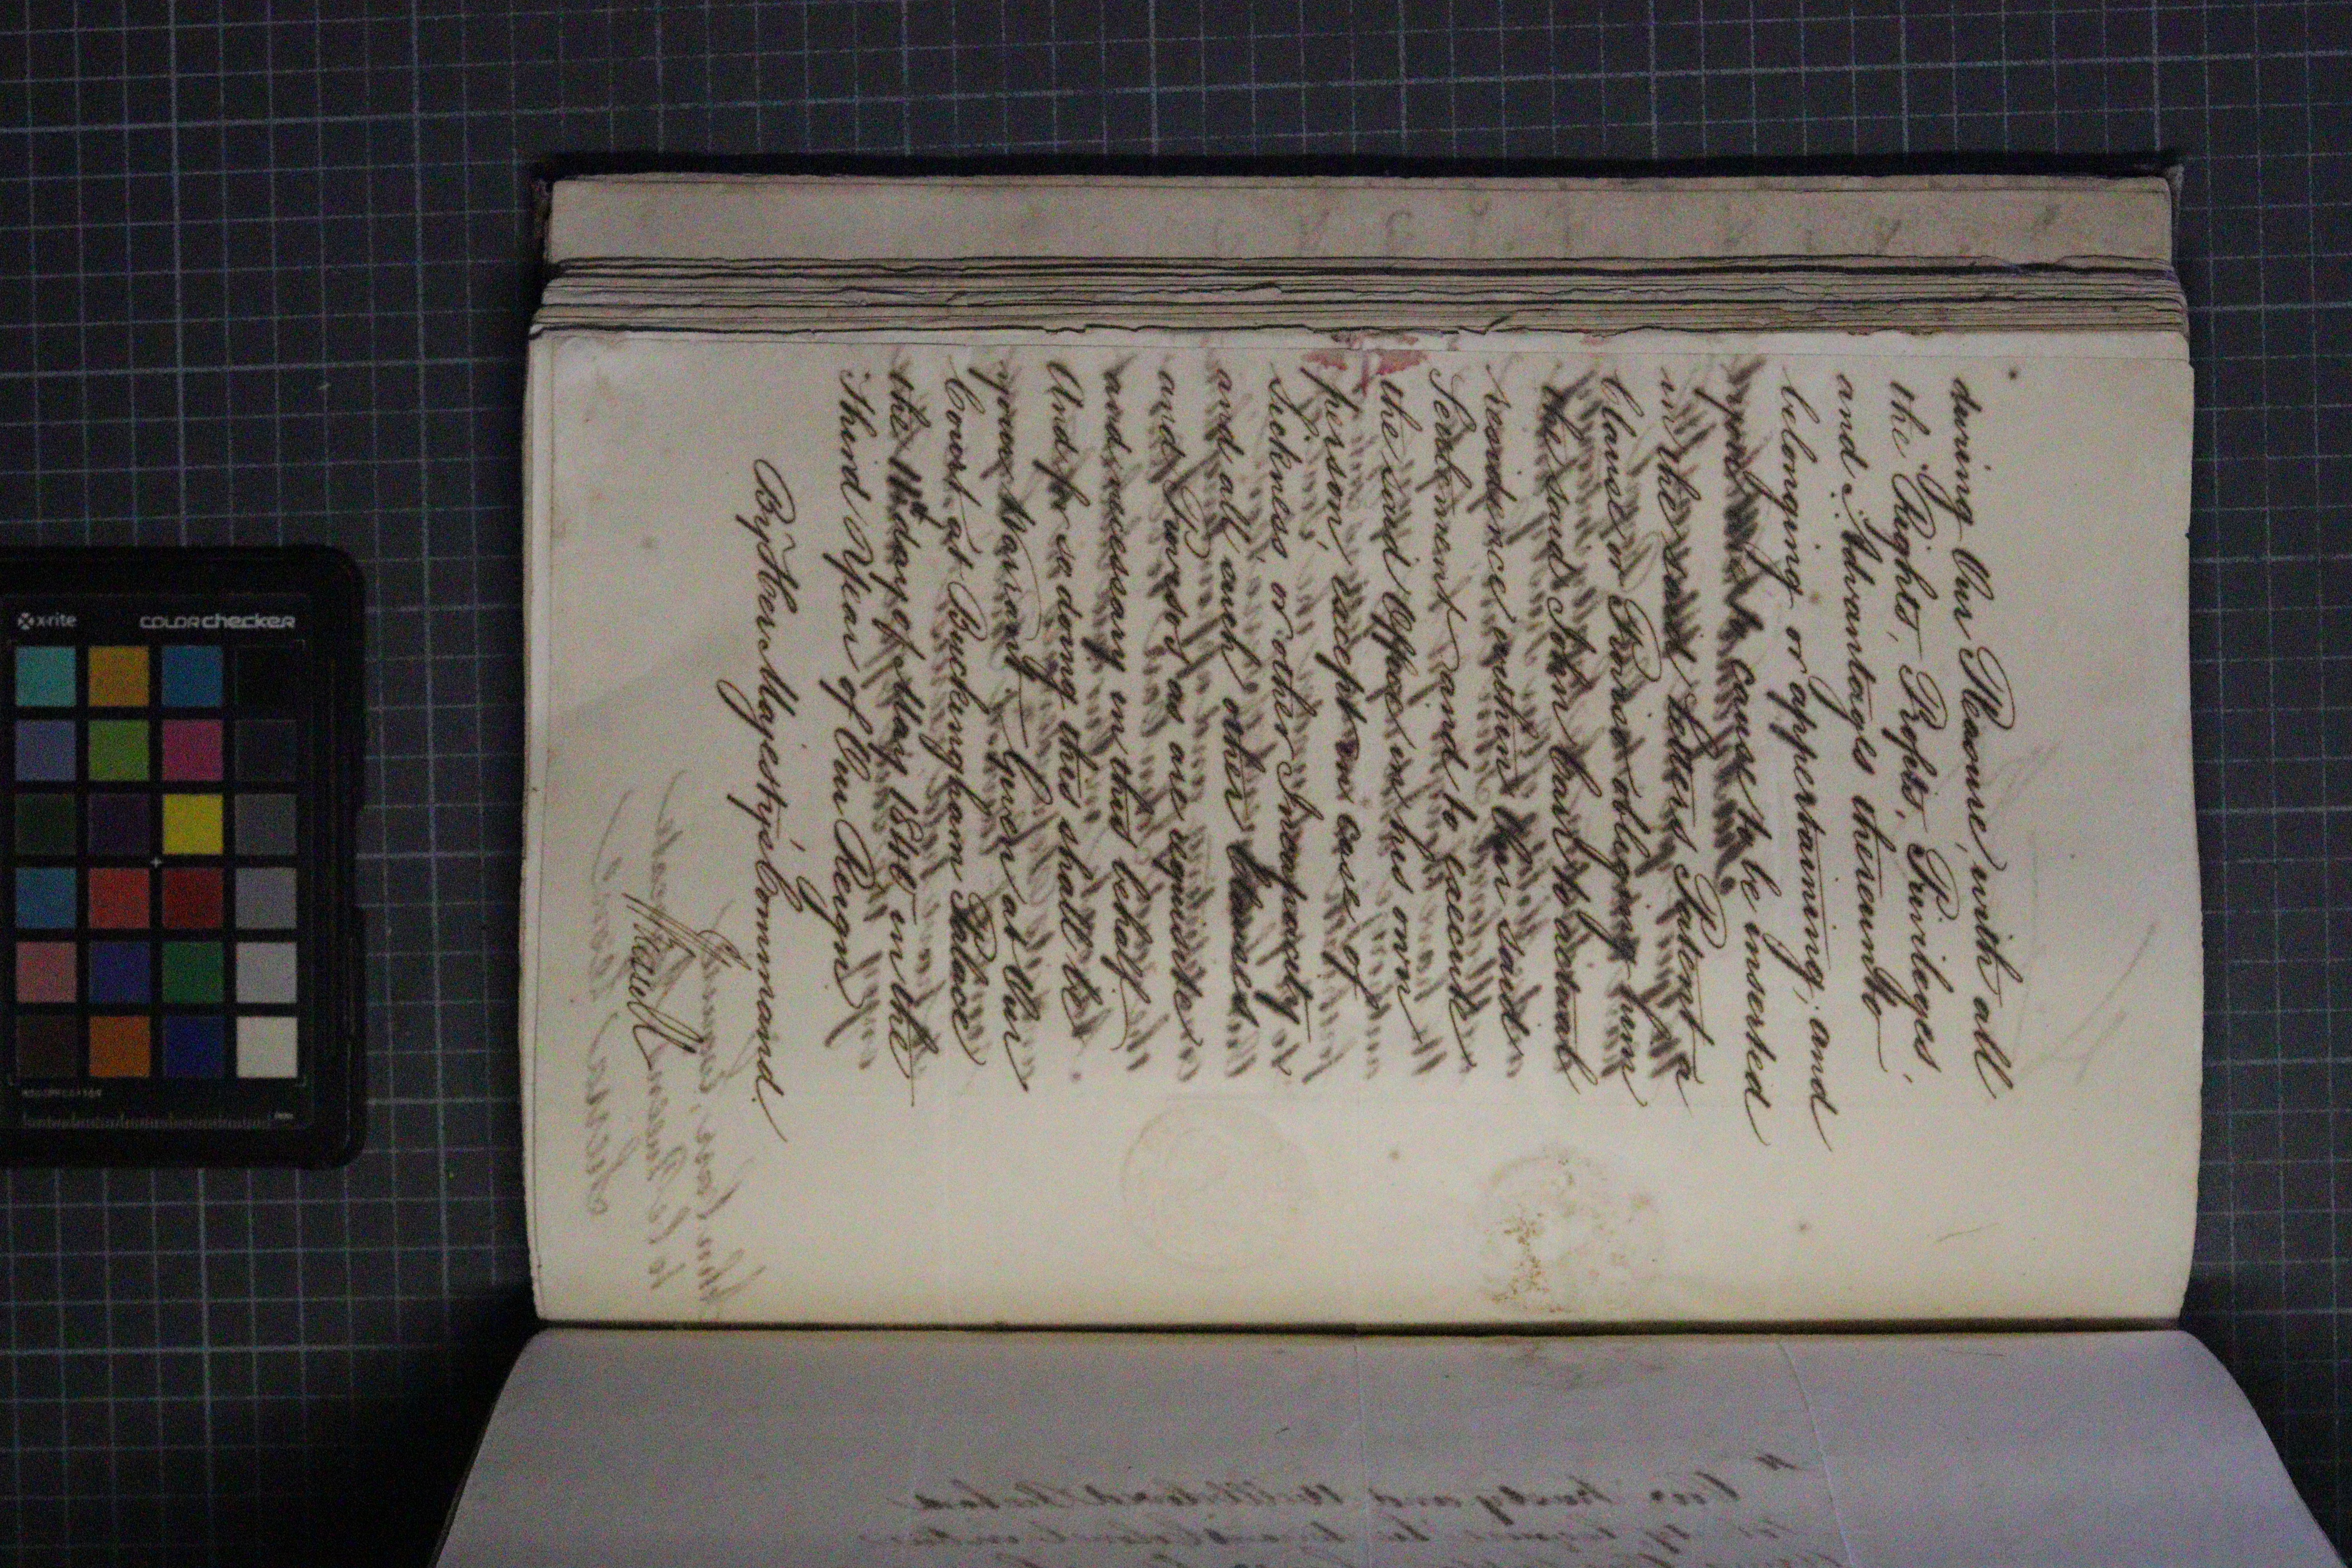 during Our Pleasure, with all
the Rights, Profits, Privileges,
and Advantages thereunto
belonging or appertaining; and
cause to be inserted
in the said Letters Patent a
Clause or Proviso obliging him
the said John Carr to actual
residence within Our said
Settlement and to execute
the said Office in his own
person, except in case of
Sickness or other Incapacity
and all such other Clauses
and Provisos as are requisite
and necessary in this behalf.
And for so doing this shall be
your Warrant. Given at Our
Court at Buckingham Palace
the 11th day of May 1840 in the
Third Year of Our Reign
By Her Majesty's Command.
x-rite
colorchecker